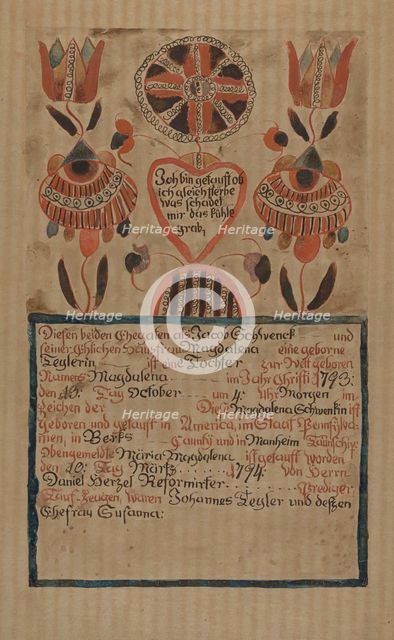 Ich bin getauft ob
ich gleich sterbe
was schadet
mir das kühle
grab,
Diesen beiden Ehegatten als Jacob Schwenck und
seiner Ehlichen Hausfrau Magdalena eine geborne
Teglerin ist eine Tochter zur Welt geboren
Namens Magdalena im Jahr Christi 1793:
den Tag October um 4: Uhr Morgen im
Zeichen der Diese Magdalena Schwenkin ist
geboren und getauft in America, im Staat Pennsylva-
nien, in Berks Caunty und in Manheim Taunschip:
Obengemeldte Maria Magdalena ist getauft worden
den 10: Tag Märtz 1794 von Herrn
Daniel Herzel Reformirter Prediger,
Tauf-Zeugen, waren Johannes Tegler und deßzen
Ehefrau Susanna:
Heritage
Heritage
Heritage
Heritage
Heritage
Heritage
Heritage
Heritage